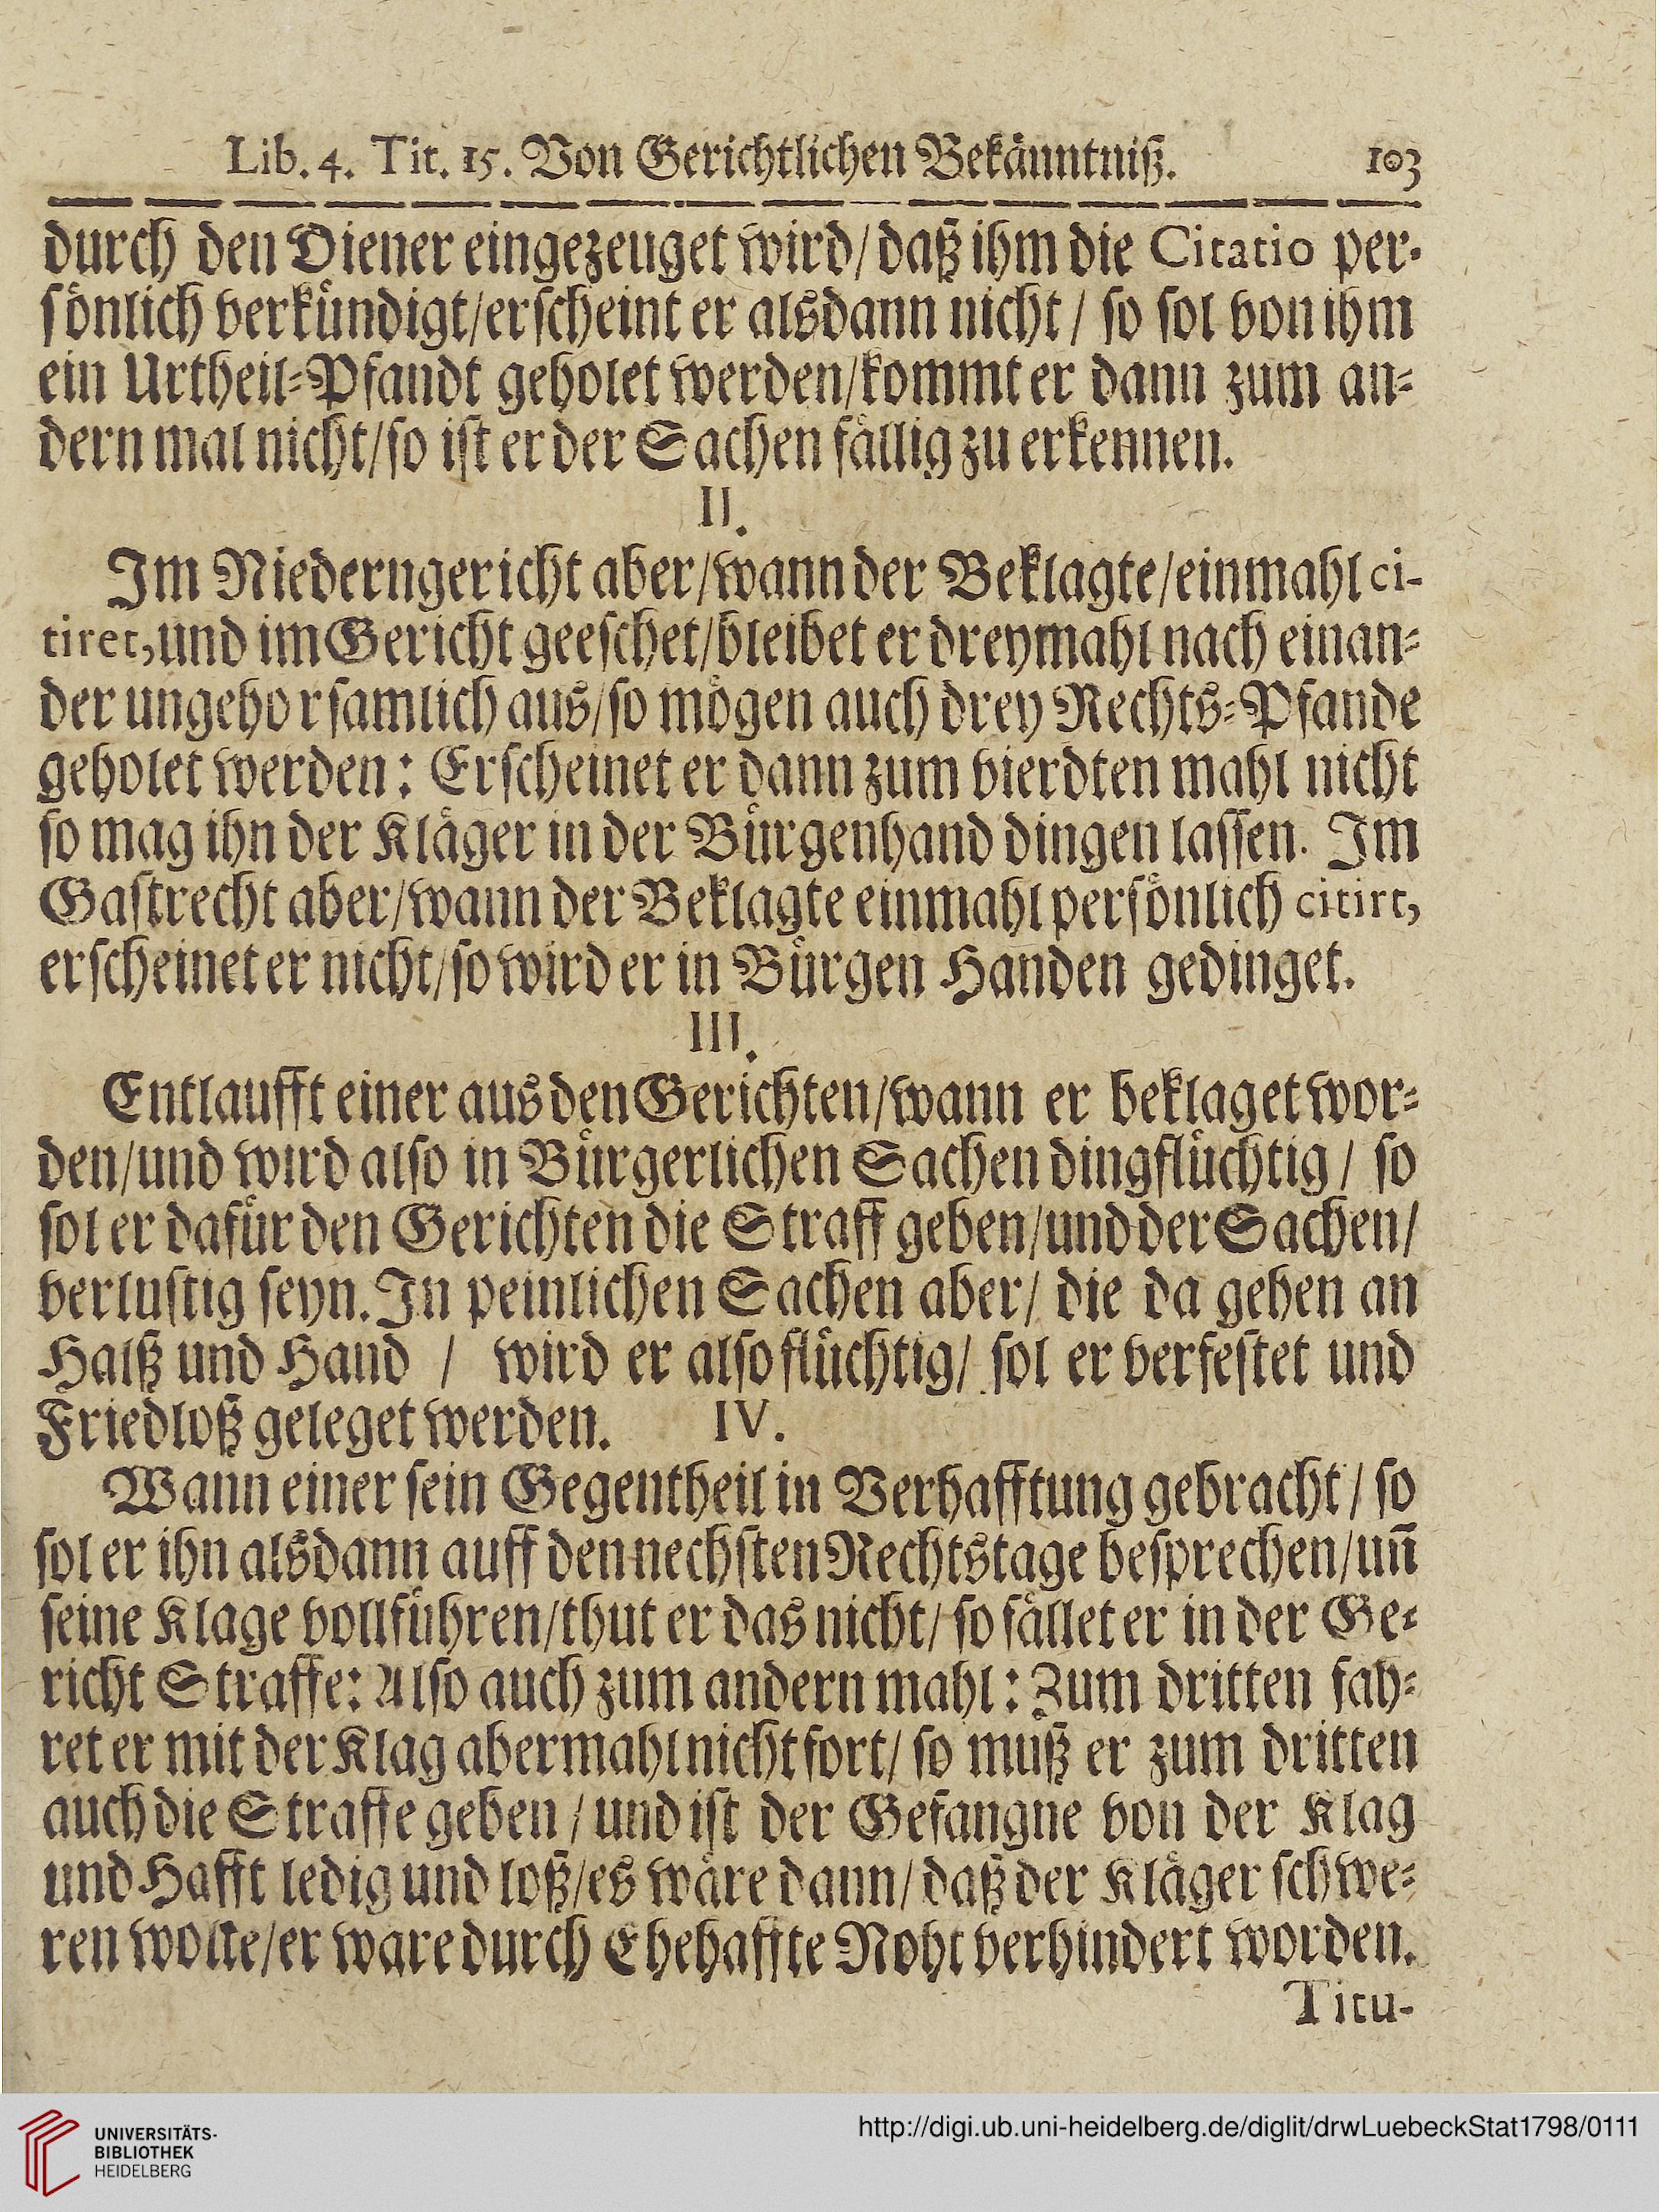 Lib. 4. Tit. 15. Von Gerichtlichen Bekänntniß. 103
durch den Diener eingezeuget wird/ daß ihm die Citatio per-
sönlich verkündigt/erscheint er alsdann nicht / so sol von ihm
ein Urtheil-Pfandt geholet werden/kommt er dann zum an-
dern mal nicht/so ist er der Sachen fällig zu erkennen.
II.
Im Niederngericht aber/wann der Beklagte/einmahl ci-
tiret,und im Gericht geeschet/bleibet er dreymahl nach einan-
der ungehorsamlich aus/so mögen auch drey Rechts-Pfande
geholet werden: Erscheinet er dann zum vierdten mahl nicht
so mag ihn der Kläger in der Bürgenhand dingen lassen. Im
Gastrecht aber/wann der Beklagte einmahl persönlich citirt,
erscheinet er nicht/so wird er in Bürgen Handen gedinget.
III.
Entlaufft einer aus den Gerichten/wann er beklaget wor-
den/und wird also in Bürgerlichen Sachen dingflüchtig/ so
sol er dafür den Gerichten die Straff geben/und der Sachen/
verlustig seyn. In peinlichen Sachen aber/ die da gehen an
Halß und Hand / wird er also flüchtig/ sol er verfestet und
Friedloß geleget werden. IV.
Wann einer sein Gegentheil in Verhafftung gebracht / so
sol er ihn alsdann auff den nechsten Rechtstage besprechen/un̄
seine Klage vollführen/thut er das nicht/ so fället er in der Ge-
richt Straffe: Also auch zum andern mahl: Zum dritten fah-
ret er mit der Klag abermahl nicht fort/ so muß er zum dritten
auch die Straffe geben / und ist der Gefangne von der Klag
und Hafft ledig und loß/es wäre dann/ daß der Kläger schwe-
ren wolte/er ware durch Ehehaffte Noht verhindert worden.
Titu-
UNIVERSITÄTS-
BIBLIOTHEK
HEIDELBERG
http://digi.ub.uni-heidelberg.de/diglit/drwLuebeckStat1798/0111